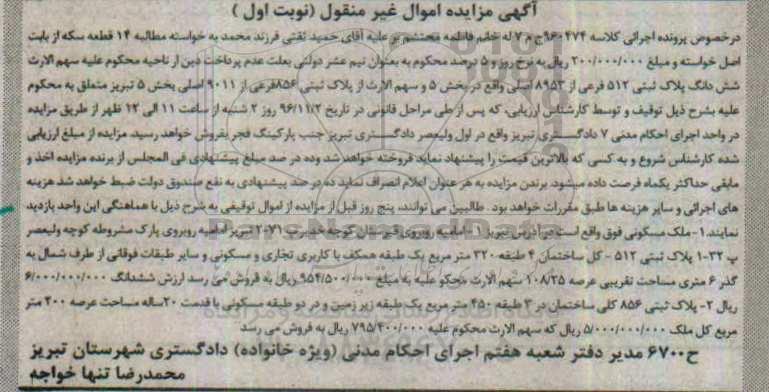 آگهی مزایده اموال غیر منقول (نوبت اول )
درخصوص پرونده اجرائی کلاسه ۹۶۰۴۷۴ج م ۷ له خانم فاطمه محتشم بر علیه آقای حمید ثقتی فرزند محمد به خواسته مطالبه ۱۴ قطعه سکه از بابت
اصل خواسته و مبلغ ۲۰۰/۰۰۰/۰۰۰ ریال به نرخ روز و ۵ درصد محکوم به بعنوان نیم عشر دولتی بعلت عدم پرداخت دین از ناحیه محکوم علیه سهم الارث
شش دانگ پلاک ثبتی ۵۱۲ فرعی از ۸۹۵۳ اصلی واقع در بخش ۵ و سهم الارث از پلاک ثبتی ۸۵۶فرعی از ۹۰۱۱ اصلی بخش ۵ تبریز متعلق به محکوم
علیه بشرح ذیل توقیف و توسط کارشناس ارزیابی، که پس از طی مراحل قانونی در تاریخ ۹۶/۱۱/۲ روز ۲ شنبه از ساعت ۱۱ الی ۱۲ ظهر از طریق مزایده
در واحد اجرای احکام مدنی ۷ دادگستری تبریز واقع در اول ولیعصر دادگستری تبریز جنب پارکینگ فجر بفروش خواهد رسید. مزایده از مبلغ ارزیابی
شده کارشناس شروع و به کسی که بالاترین قیمت را پیشنهاد نماید فروخته خواهد شد وده در صد مبلغ پیشنهادی فی المجلس از برنده مزایده اخذ و
مابقی حداکثر یکماه فرصت داده میشود. برندن مزایده به هر عنوان اعلام انصراف نماید ده در صد پیشنهادی به نفع صندوق دولت ضبط خواهد شد هزینه
های اجرائی و سایر هزینه ها طبق مقررات خواهد بود . طالبین می توانند، پنج روز قبل از مزایده از اموال توقیفی به شرح ذیل با هماهنگی این واحد بازدید
نمایند. ۱- ملک مسکونی فوق واقع است در آدرس تبریز ۱- امامیه روبروی قبرستان کوچه حیدری ۲۰۷۱- تبریز امامیه روبروی پارک مشروطه کوچه ولیعصر
پ ۳۲-۱ پلاک ثبتی ۵۱۲ - کل ساختمان ۴ طبقه ۳۲۰ متر مربع یک طبقه همکف با کاربری تجاری و مسکونی و سایر طبقات فوقانی از طرف شمال به
گذر ۶ متری مساحت تقریبی عرصه ۱۰۸/۲۵ سهم الارث محکو علیه به مبلغ ۹۵۴/۵۰۰/۰۰۰ ریال به فروش می رسد ارزش ششدانگ ۶/۰۰۰/۰۰۰/۰۰۰
ریال ۲- پلاک ثبتی ۸۵۶ کلی ساختمان در ۳ طبقه ۴۵۰ متر مربع یک طبقه زیر زمین و در دو طبقه مسکونی با قدمت ۲۰ساله مساحت عرصه ۲۰۰ متر
مربع کل ملک ۵/۰۰۰/۰۰۰/۰۰۰ ریال که سهم الارث محکوم علیه ۷۹۵/۴۰۰/۰۰۰ ریال به فروش می رسد
ح۶۷۰۰ مدیر دفتر شعبه هفتم اجرای احکام مدنی (ویژه خانواده) دادگستری شهرستان تبریز
محمدرضا تنها خواجه